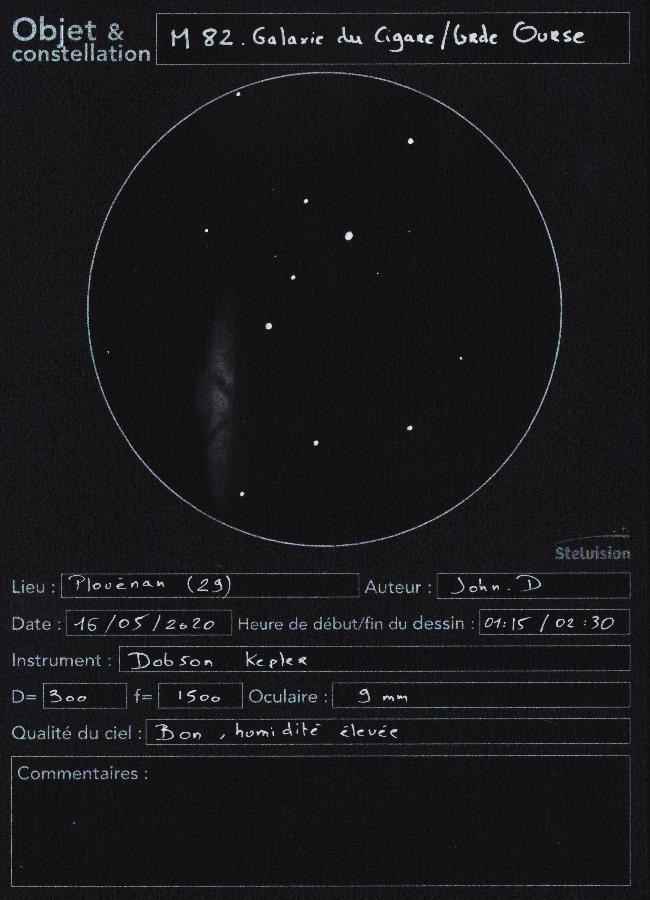 Objet &
constellation
M 82. Galaxie du Cigare/Grde Ourse
Stelvision
Lieu : Plouénan (29) Auteur : John. D
Date : 16/05/2020 Heure de début/fin du dessin : 01:15 / 02:30
Instrument : Dobson Kepler
D= 300 f= 1500 Oculaire : 9 mm
Qualité du ciel : Bon, humidité élevée
Commentaires :